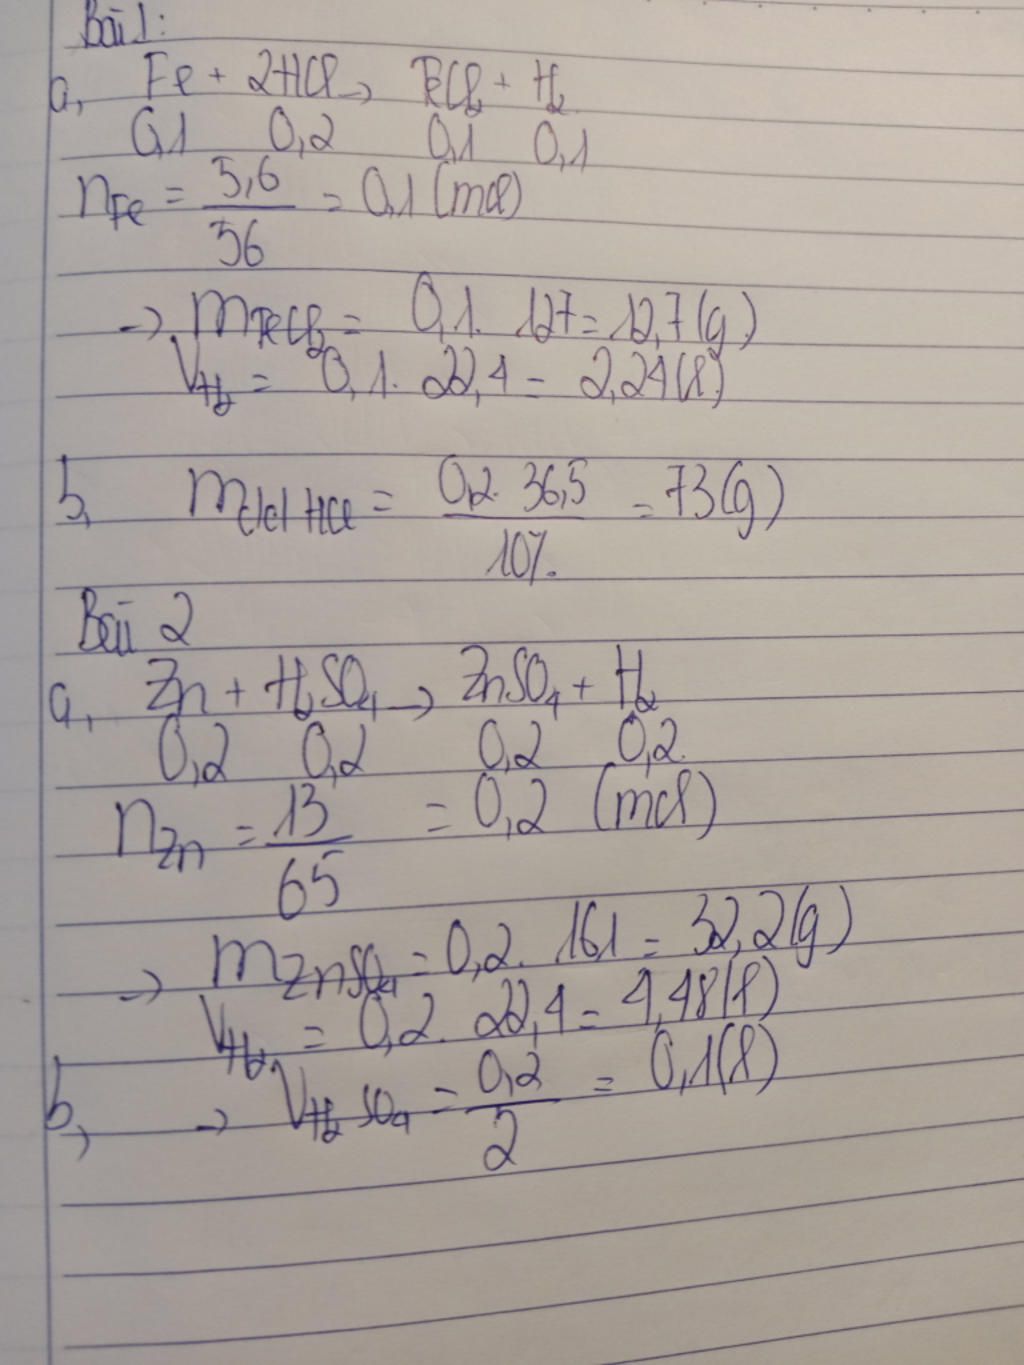 Bài 1:
a, Fe + 2HCl → FeCl2 + H2
0,1 0,2 0,1 0,1
nFe = 5,6/56 = 0,1 (mol)
→ mFeCl2 = 0,1. 127 = 12,7 (g)
VH2 = 0,1. 22,4 = 2,24 (l)
b, mdd HCl = 0,2. 36,5/10% = 73 (g)
Bài 2
a, Zn + H2SO4 → ZnSO4 + H2
0,2 0,2 0,2 0,2
nZn = 13/65 = 0,2 (mol)
→ mZnSO4 = 0,2. 161 = 32,2 (g)
VH2 = 0,2. 22,4 = 4,48 (l)
b, → VH2SO4 = 0,2/2 = 0,1 (l)